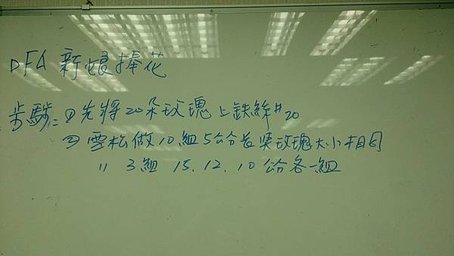 DFA 新娘捧花
步驟：① 先將20朵玫瑰上鉄絲#20
② 雪松做10組5公分長與玫瑰大小相同
〃 3組 15.12.10公分各一組